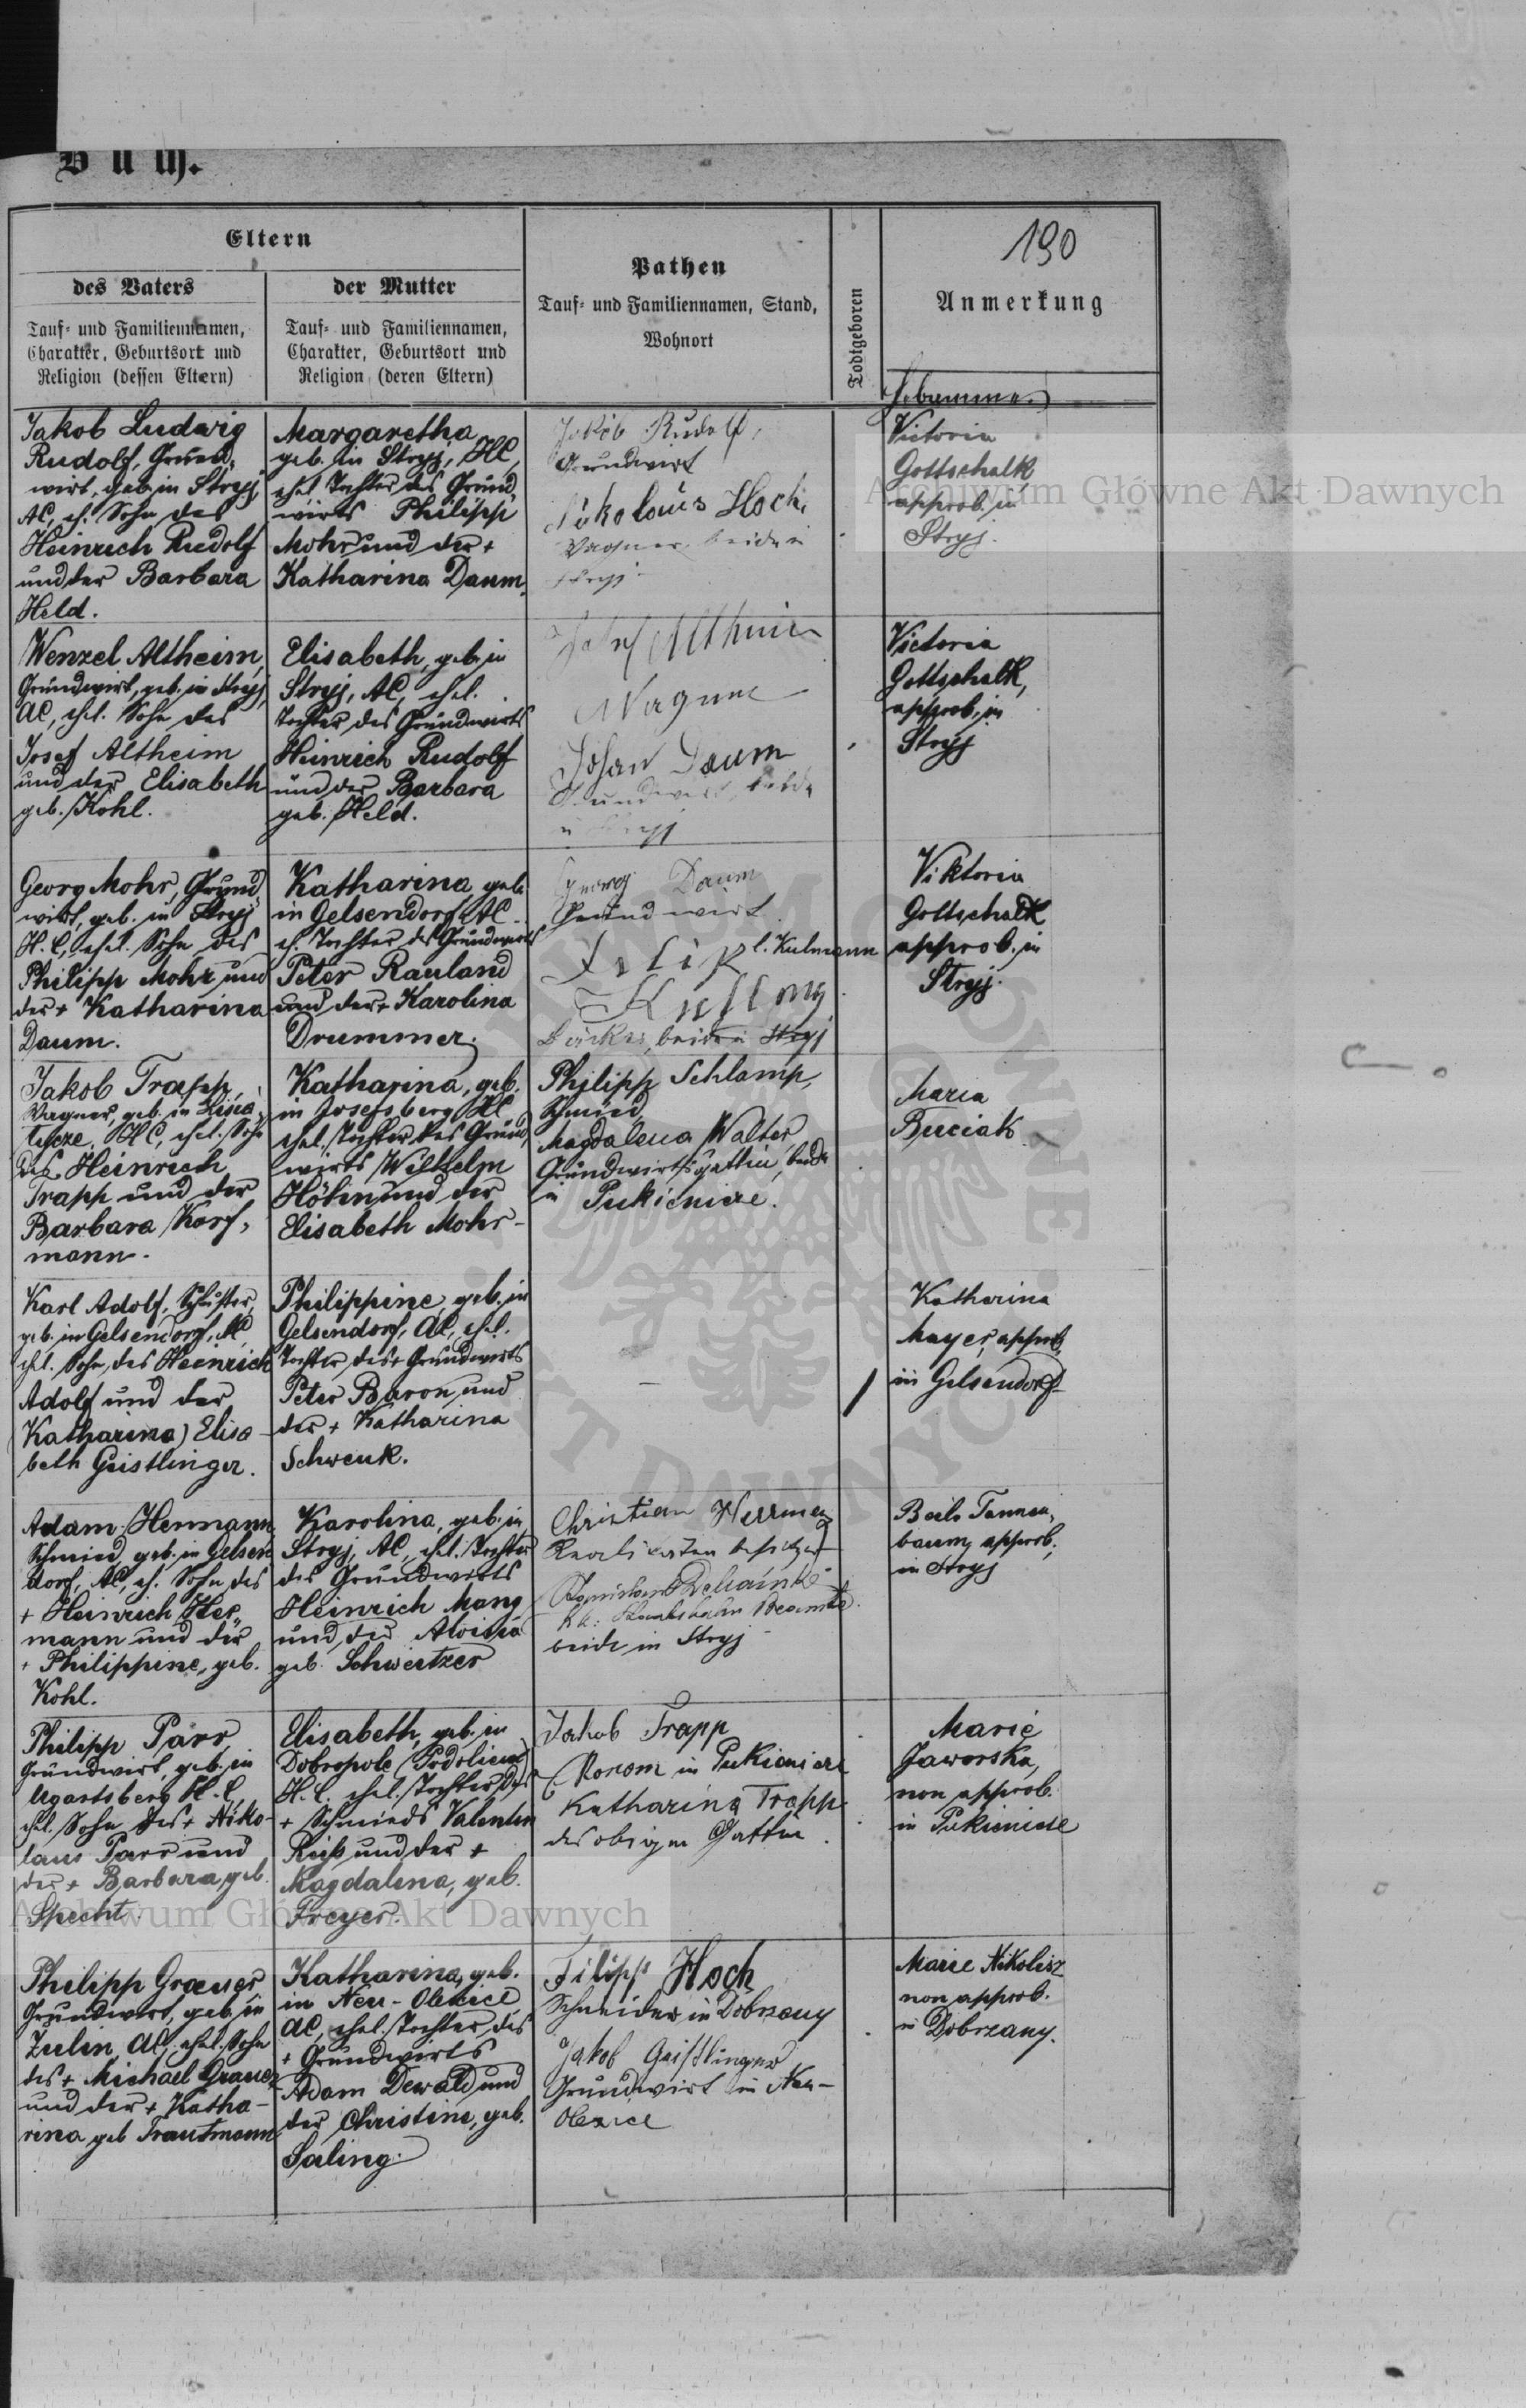 Buch.
190
Eltern
des Vaters
Tauf- und Familiennamen,
Charakter, Geburtsort und
Religion (dessen Eltern)
der Mutter
Tauf- und Familiennamen,
Charakter, Geburtsort und
Religion (deren Eltern)
Pathen
Tauf- und Familiennamen, Stand,
Wohnort
Todtgeboren
Anmerkung
Hebamme
Jakob Ludwig
Rudolf, Grund-
wirt, geb. in Stryj
AC, eh. Sohn des
Heinrich Rudolf
und der Barbara
Held.
Margaretha
geb. in Stryj, HC,
ehel. Tochter des Grund-
wirts Philipp
Mohr und der +
Katharina Daum.
Jakob Rudolf,
Grundwirt
Nikolaus Hoch,
Wagner, beide in
Stryj
Victoria
Gottschalk
approb. in
Stryj.
Wenzel Altheim,
Grundwirt, geb. in Stryj,
AC, ehel. Sohn des
Josef Altheim
und der Elisabeth
geb. Kohl.
Elisabeth, geb. in
Stryj, AC, ehel.
Tochter des Grundwirts
Heinrich Rudolf
und der Barbara
geb. Held.
Josef
Wagner
Johan Daum
Grundwirt, beide
in Stryj
Victoria
Gottschalk,
approb. in
Stryj
Georg Mohr, Grund-
wirt, geb. in Stryj
H.C, ehel. Sohn des
Philipp Mohr und
der + Katharina
Daum.
Katharina geb.
in Gelsendorf AC
eh. Tochter des Grundwirts
Peter Rauland
und der + Karolina
Drummer.
Georg Daum
Grundwirt
l. Kulmann
Bäcker, beide in Stryj
Viktoria
Gottschalk
approb. in
Stryj.
Jakob Trapp,
Wagner, geb. in
HC, ehel. Sohn
des Heinrich
Trapp und der
Barbara Korf-
mann.
Katharina, geb.
in Josefsberg HC
ehel. Tochter des Grund-
wirts Wilhelm
Höhn und der
Elisabeth Mohr-
Philipp Schlamp,
Schmied,
Magdalena Walter,
Grundwirtsgattin, beide
in Pukienice.
Maria
Buciak
Karl Adolf, Schuster,
geb. in Gelsendorf, AC,
ehel. Sohn des Heinrich
Adolf und der
(Katharina) Elisa-
beth Geistlinger.
Philippine, geb. in
Gelsendorf, AC, ehel.
Tochter des + Grundwirts
Peter Baron und
der + Katharina
Schwenk.
—
/
Katharina
Mayer, approb.
in Gelsendorf
Adam Hermann
Schmied, geb. in Gelsen-
dorf, AC, eh. Sohn des
+ Heinrich Her-
mann und der
+ Philippine, geb.
Kohl.
Karolina, geb. in
Stryj, AC, ehel. Tochter
des Grundwirts
Heinrich Mang
und der Aloisia
geb. Schweitzer
Christian Herrman
Realitäten besitzer
k.k. Staatsbahn Beamte
beide in Stryj
Tannen-
baum, approb.
in Stryj
Philipp Parr,
Grundwirt, geb. in
Ugartsberg H.C,
ehel. Sohn des + Niko-
laus Parr und
der + Barbara, geb.
Specht
Elisabeth, geb. in
Dobropole (Podolien)
H.C. ehel. Tochter des
+ Schmieds Valentin
Reiß und der +
Magdalena, geb.
Freyer.
Jakob Trapp
Ekonom in Pukienice
Katharina Trapp
des obigen Gattin.
Marie
Jaworska,
non approb.
in Pukienice
Philipp Grauer
Grundwirt, geb. in
Zulin, AC, ehel. Sohn
des + Michael Grauer
und der + Katha-
rina geb Trautmann
Katharina, geb.
in Neu-Olexice
AC, ehel. Tochter des
+ Grundwirts
Adam Dewald und
der Christine, geb.
Saling.
Filipp Hoch
Schneider in Dobrzany
Jakob Geistlinger
Grundwirt in Neu-
Olexice
Marie Nikolisz
non approb.
in Dobrzany.
Archiwum Główne Akt Dawnych
Archiwum Główne Akt Dawnych